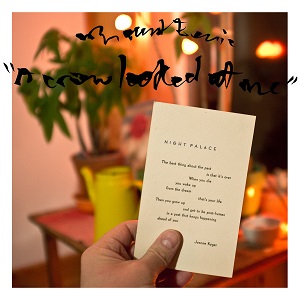 mount eerie
"a crow looked at me"
NIGHT PALACE
The best thing about the past
is that it's over
When you die
you wake up
from the dream
that's your life
Then you grow up
and get to be post human
in a past that keeps happening
ahead of you
Joanne Kyger